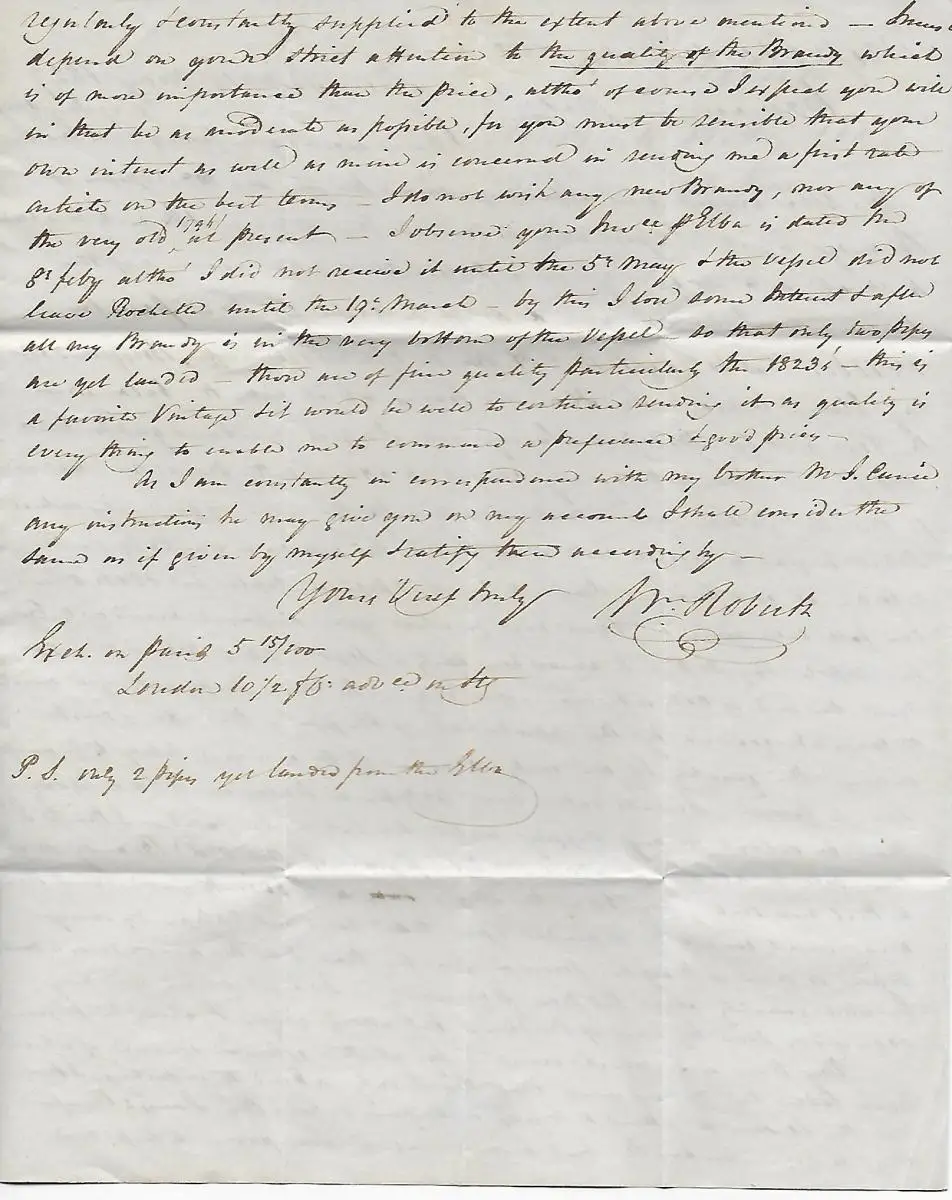 regularly & constantly supplied to the extent above mentioned — I must
depend on your strict attention to the quality of the Brandy which
is of more importance than the price, altho' of course I expect you will
in that be as moderate as possible, for you must be sensible that your
own interest as well as mine is concerned in sending me a first rate
article on the best terms — I do not wish any new Brandy, nor any of
the very old, at present — I observe your Invce p Elba is dated the
8t feby altho' I did not receive it until the 5t May & the Vessel did not
leave Rochelle until the 19t March — by this I lose some Interest & after
all my Brandy is in the very bottom of the Vessel — so that only two pipes
are yet landed — those are of fine quality particularly the 1823's — this is
a favorite Vintage & it would be well to continue sending it as quality is
every thing to enable me to command a preference & good prices —
As I am constantly in correspondence with my brother Mr J.
any instructions he may give you on my account I shall consider the
same as if given by myself & ratify them accordingly —
Yours very truly Wm Roberts
Exch. on Paris 5 15/100
London 10 1/2
P. S. only 2 pipes yet landed from the Elba